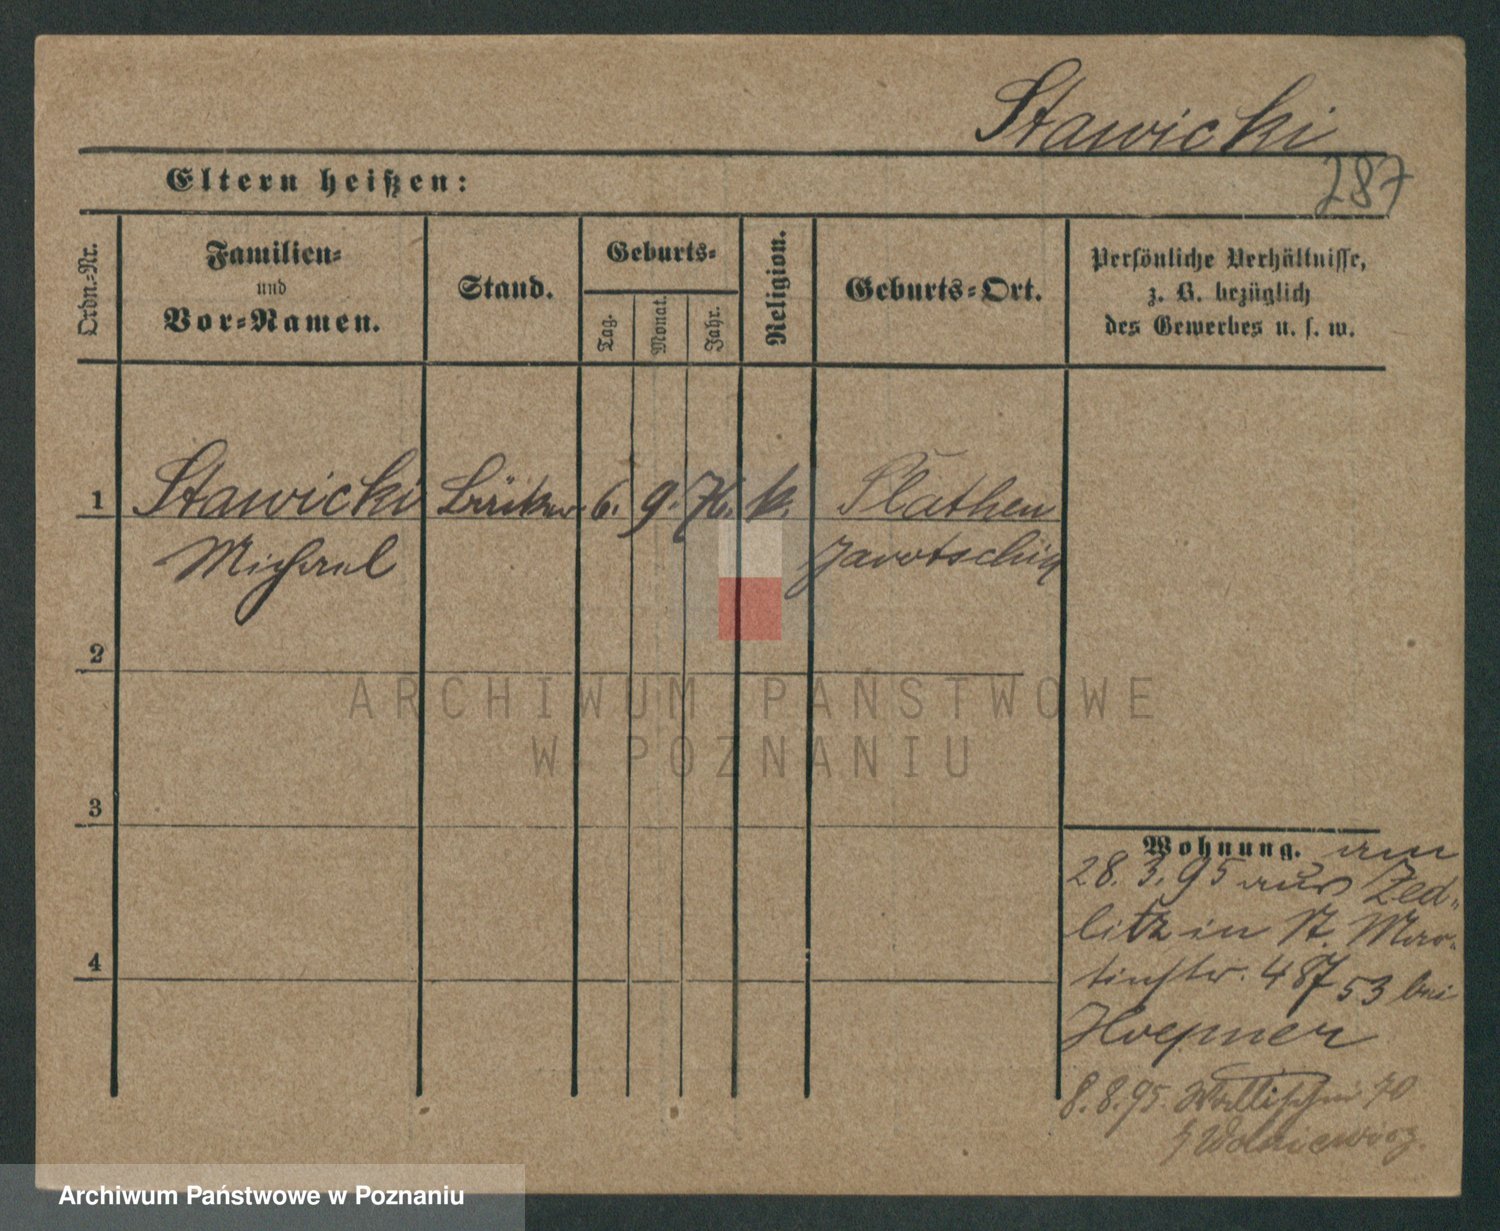 Stawicki
Eltern heißen:
287
Ordn.-Nr.
Familien-
und
Vor-Namen.
Stand.
Geburts-
Tag.
Monat.
Jahr.
Religion.
Geburts-Ort.
Persönliche Verhältnisse,
z. B. bezüglich
des Gewerbes u. s. w.
1
Stawicki Bäcker 6. 9. 76. k.
Jarotschin
Michael
2
3
4
ARCHIWUM PAŃSTWOWE
W POZNANIU
Wohnung. am
28. 3. 95 aus Zed-
litz in St. Mar-
tinstr. 487 53 bei
Hoepner
8. 8. 95. Wallischei
Archiwum Państwowe w Poznaniu